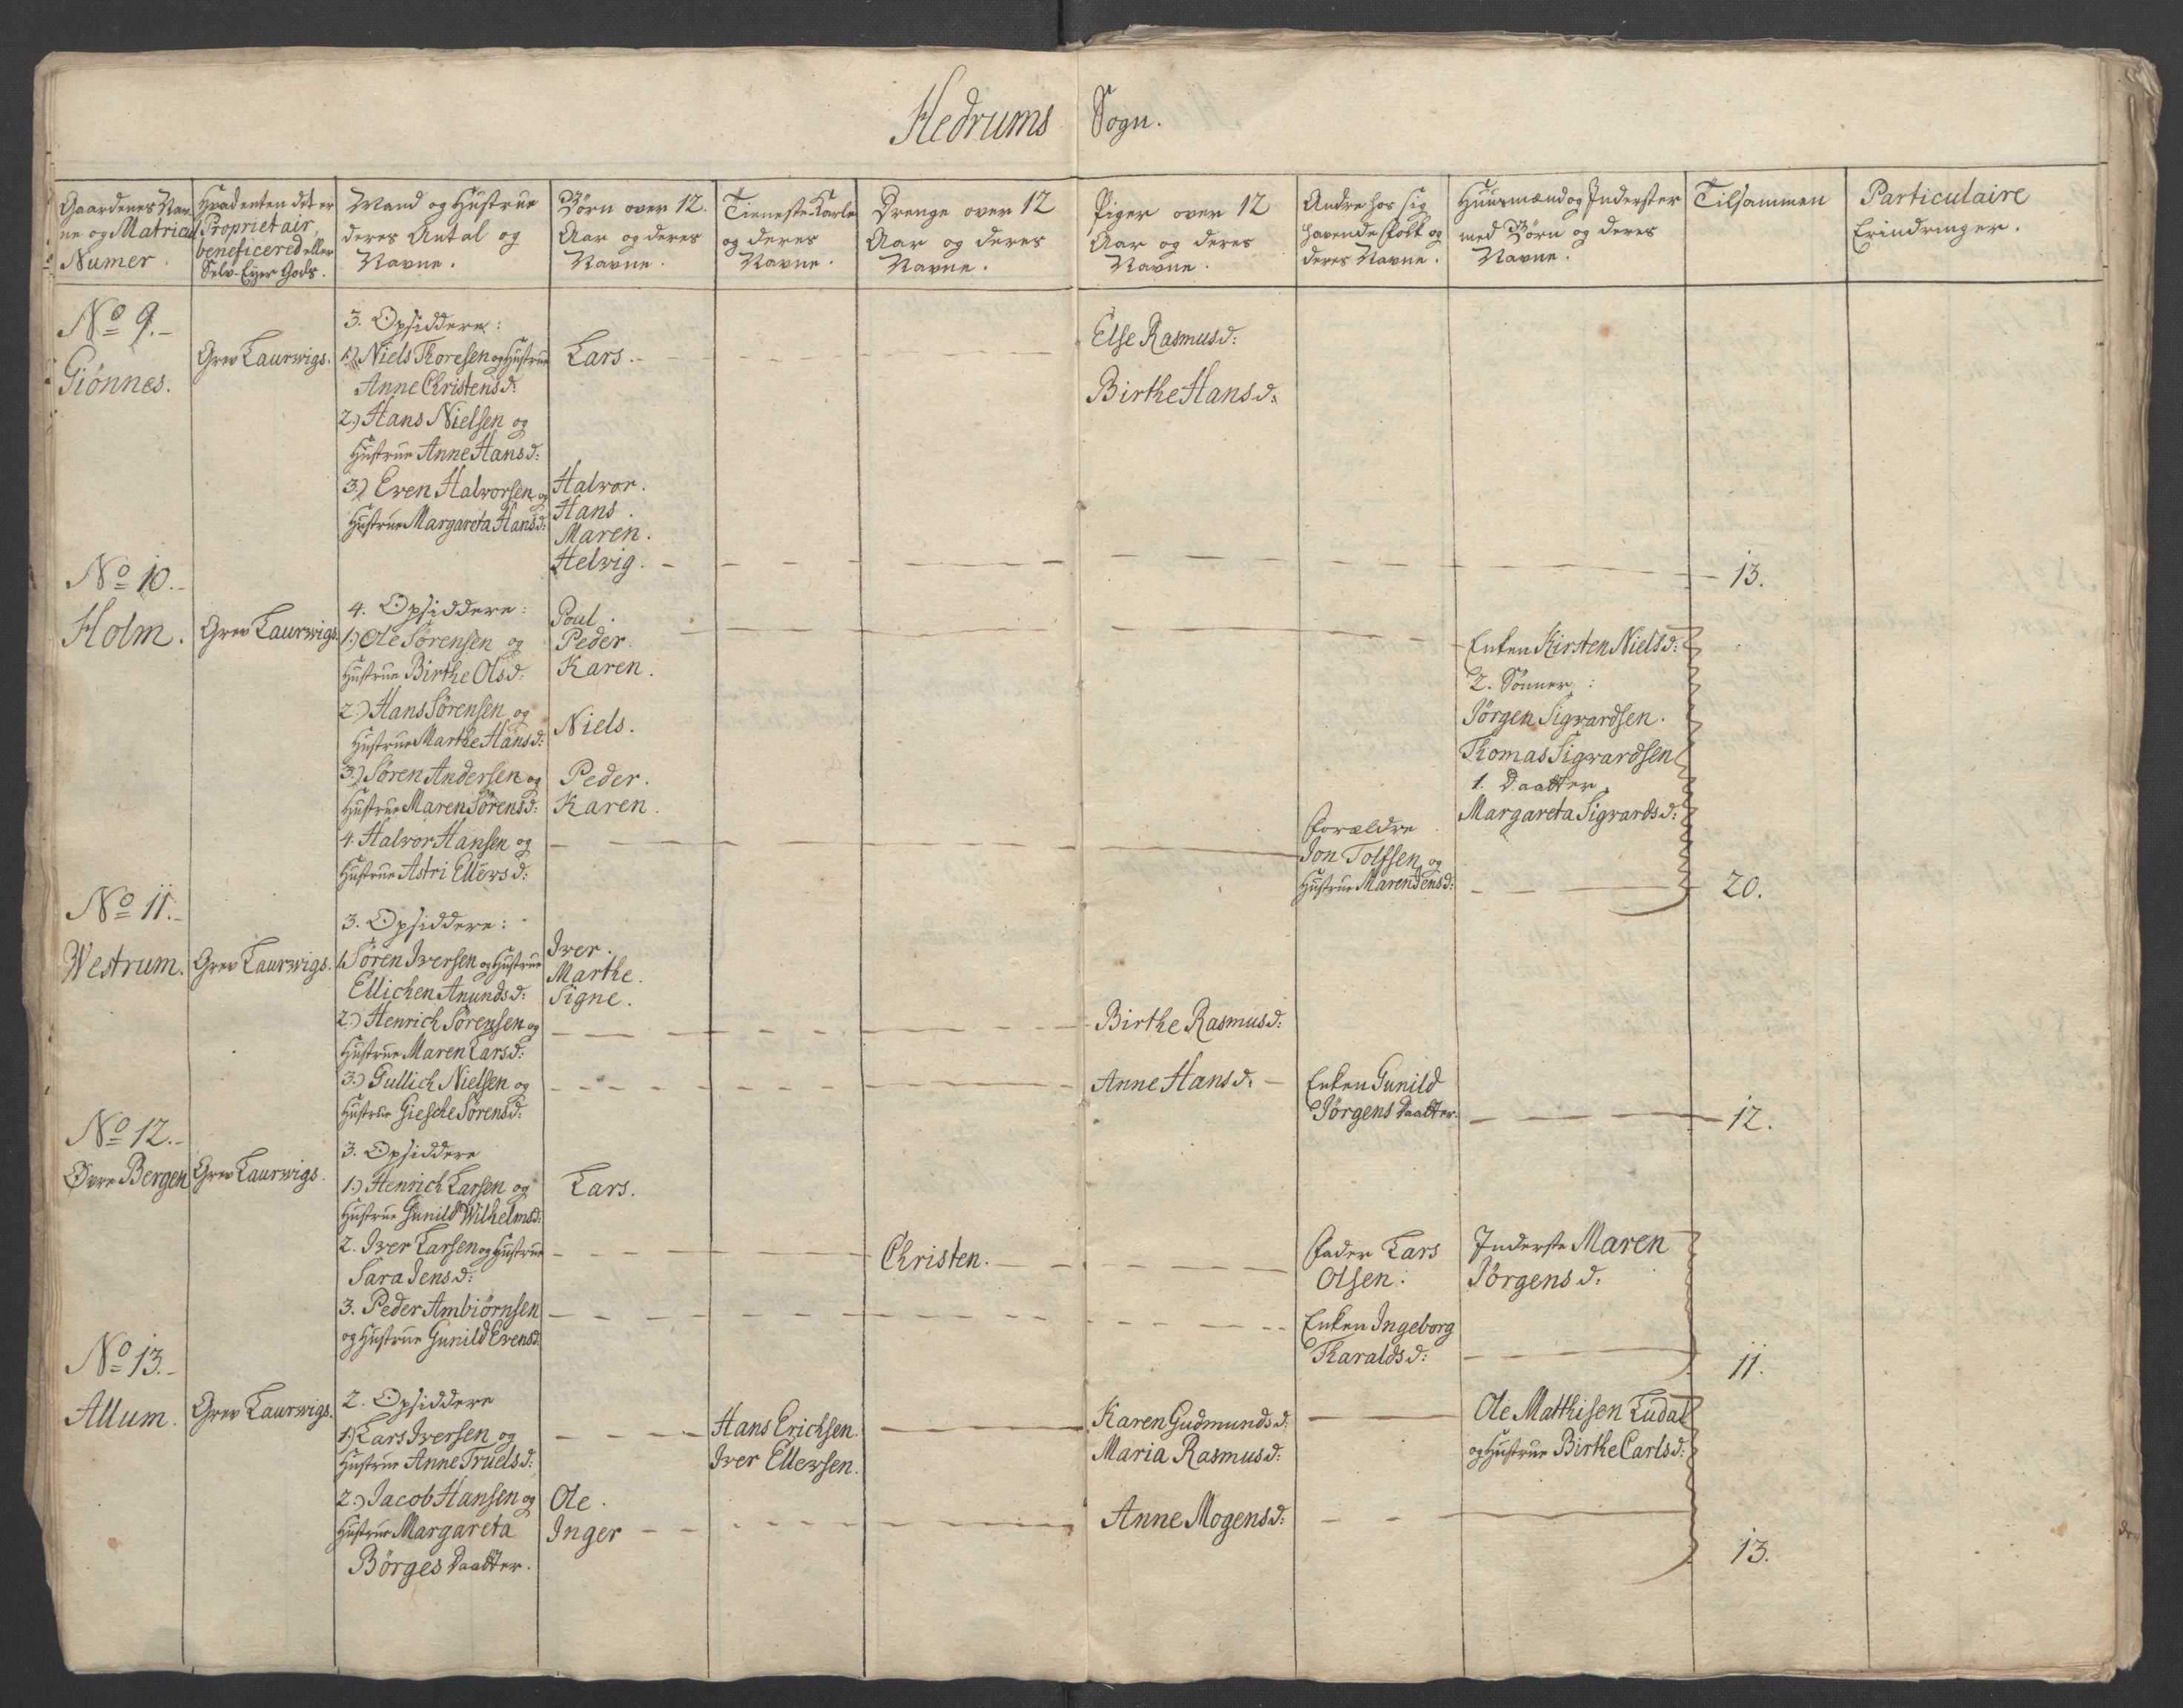 Hedrums Sogn.
Gaardenes Nav-
ne og Matricul
Numer.
Hvad enten det er
Proprietair,
beneficered eller
Selv-Eyer Gods.
Mand og Hustrue
deres Antal og
Navne.
Børn over 12.
Aar og deres
Navne.
Tieneste Karle
og deres
Navne.
Drenge over 12
Aar og deres
Navne.
Piger over 12
Aar og deres
Navne.
Andre hos sig
havende Folk og
deres Navne.
Huusmænd og Inderster
med Børn og deres
Navne.
Tilsammen
Particulaire
Erindringer.
No 9.
Giönnes.
Grev Laurwigs.
3. Opsiddere:
1.) Niels Thoresen og Hustrue
Anne Christensd:
2.) Hans Nielsen og
Hustrue Anne Hansd:
3.) Even Halvorsen og
Hustrue Margareta Hansd:
Lars.
Halvor.
Hans.
Maren.
Helvig.
Else Rasmusd:
Birthe Hansd:
13.
No 10.
Holm.
Grev Laurwigs.
4. Opsiddere:
1.) Ole Sörensen og
Hustrue Birthe Olsd:
2.) Hans Sörensen og
Hustrue Marthe Hansd:
3.) Sören Andersen og
Hustrue Maren Sörensd:
4. Halvor Hansen og
Hustrue Astri Ellevsd:
Poul.
Peder.
Karen.
Niels.
Peder.
Karen.
Forældre
Jon Tolfsen og
Hustrue Maren Jensd:
Enken Kirsten Nielsd:
2. Sönner:
Jörgen Sigvardsen.
Thomas Sigvardsen
1. Daatter
Margareta Sigvardsd:
20.
No 11.
Westrum.
Grev Laurwigs.
3. Opsiddere:
1. Sören Iversen og Hustrue
Ellichen Anundsd:
2.) Henrich Sörensen og
Hustrue Maren Larsd:
3.) Gullich Nielsen og
Hustrue Giesche Sörensd:
Iver.
Marthe.
Signe.
Birthe Rasmusd:
Anne Hansd.
Enken Gunild
Jörgens Daatter.
12.
No 12.
Øvre Bergen
Grev Laurwigs.
3. Opsiddere
1.) Henrich Larsen og
Hustrue Gunild Wilhelmsd:
2. Iver Larsen og Hustrue
Sara Jensd:
3. Peder Ambiörnsen
og Hustrue Gunild Evensd:
Lars.
Christen.
Fader Lars
Olsen.
Enken Ingeborg
Tharaldsd:
Inderste Maren
Jörgensd.
11.
No 13.
Allum.
Grev Laurwigs.
2. Opsiddere
1.) Lars Iversen og
Hustrue Anne Truelsd:
2.) Jacob Hansen og
Hustrue Margareta
Börges Daatter.
Ole.
Inger
Hans Erichsen.
Iver Ellevsen.
Karen Gudmundsd:
Maria Rasmusd:
Anne Mogensd:
Ole Matthisen Ludal
og Hustrue Birthe Carlsd:
13.